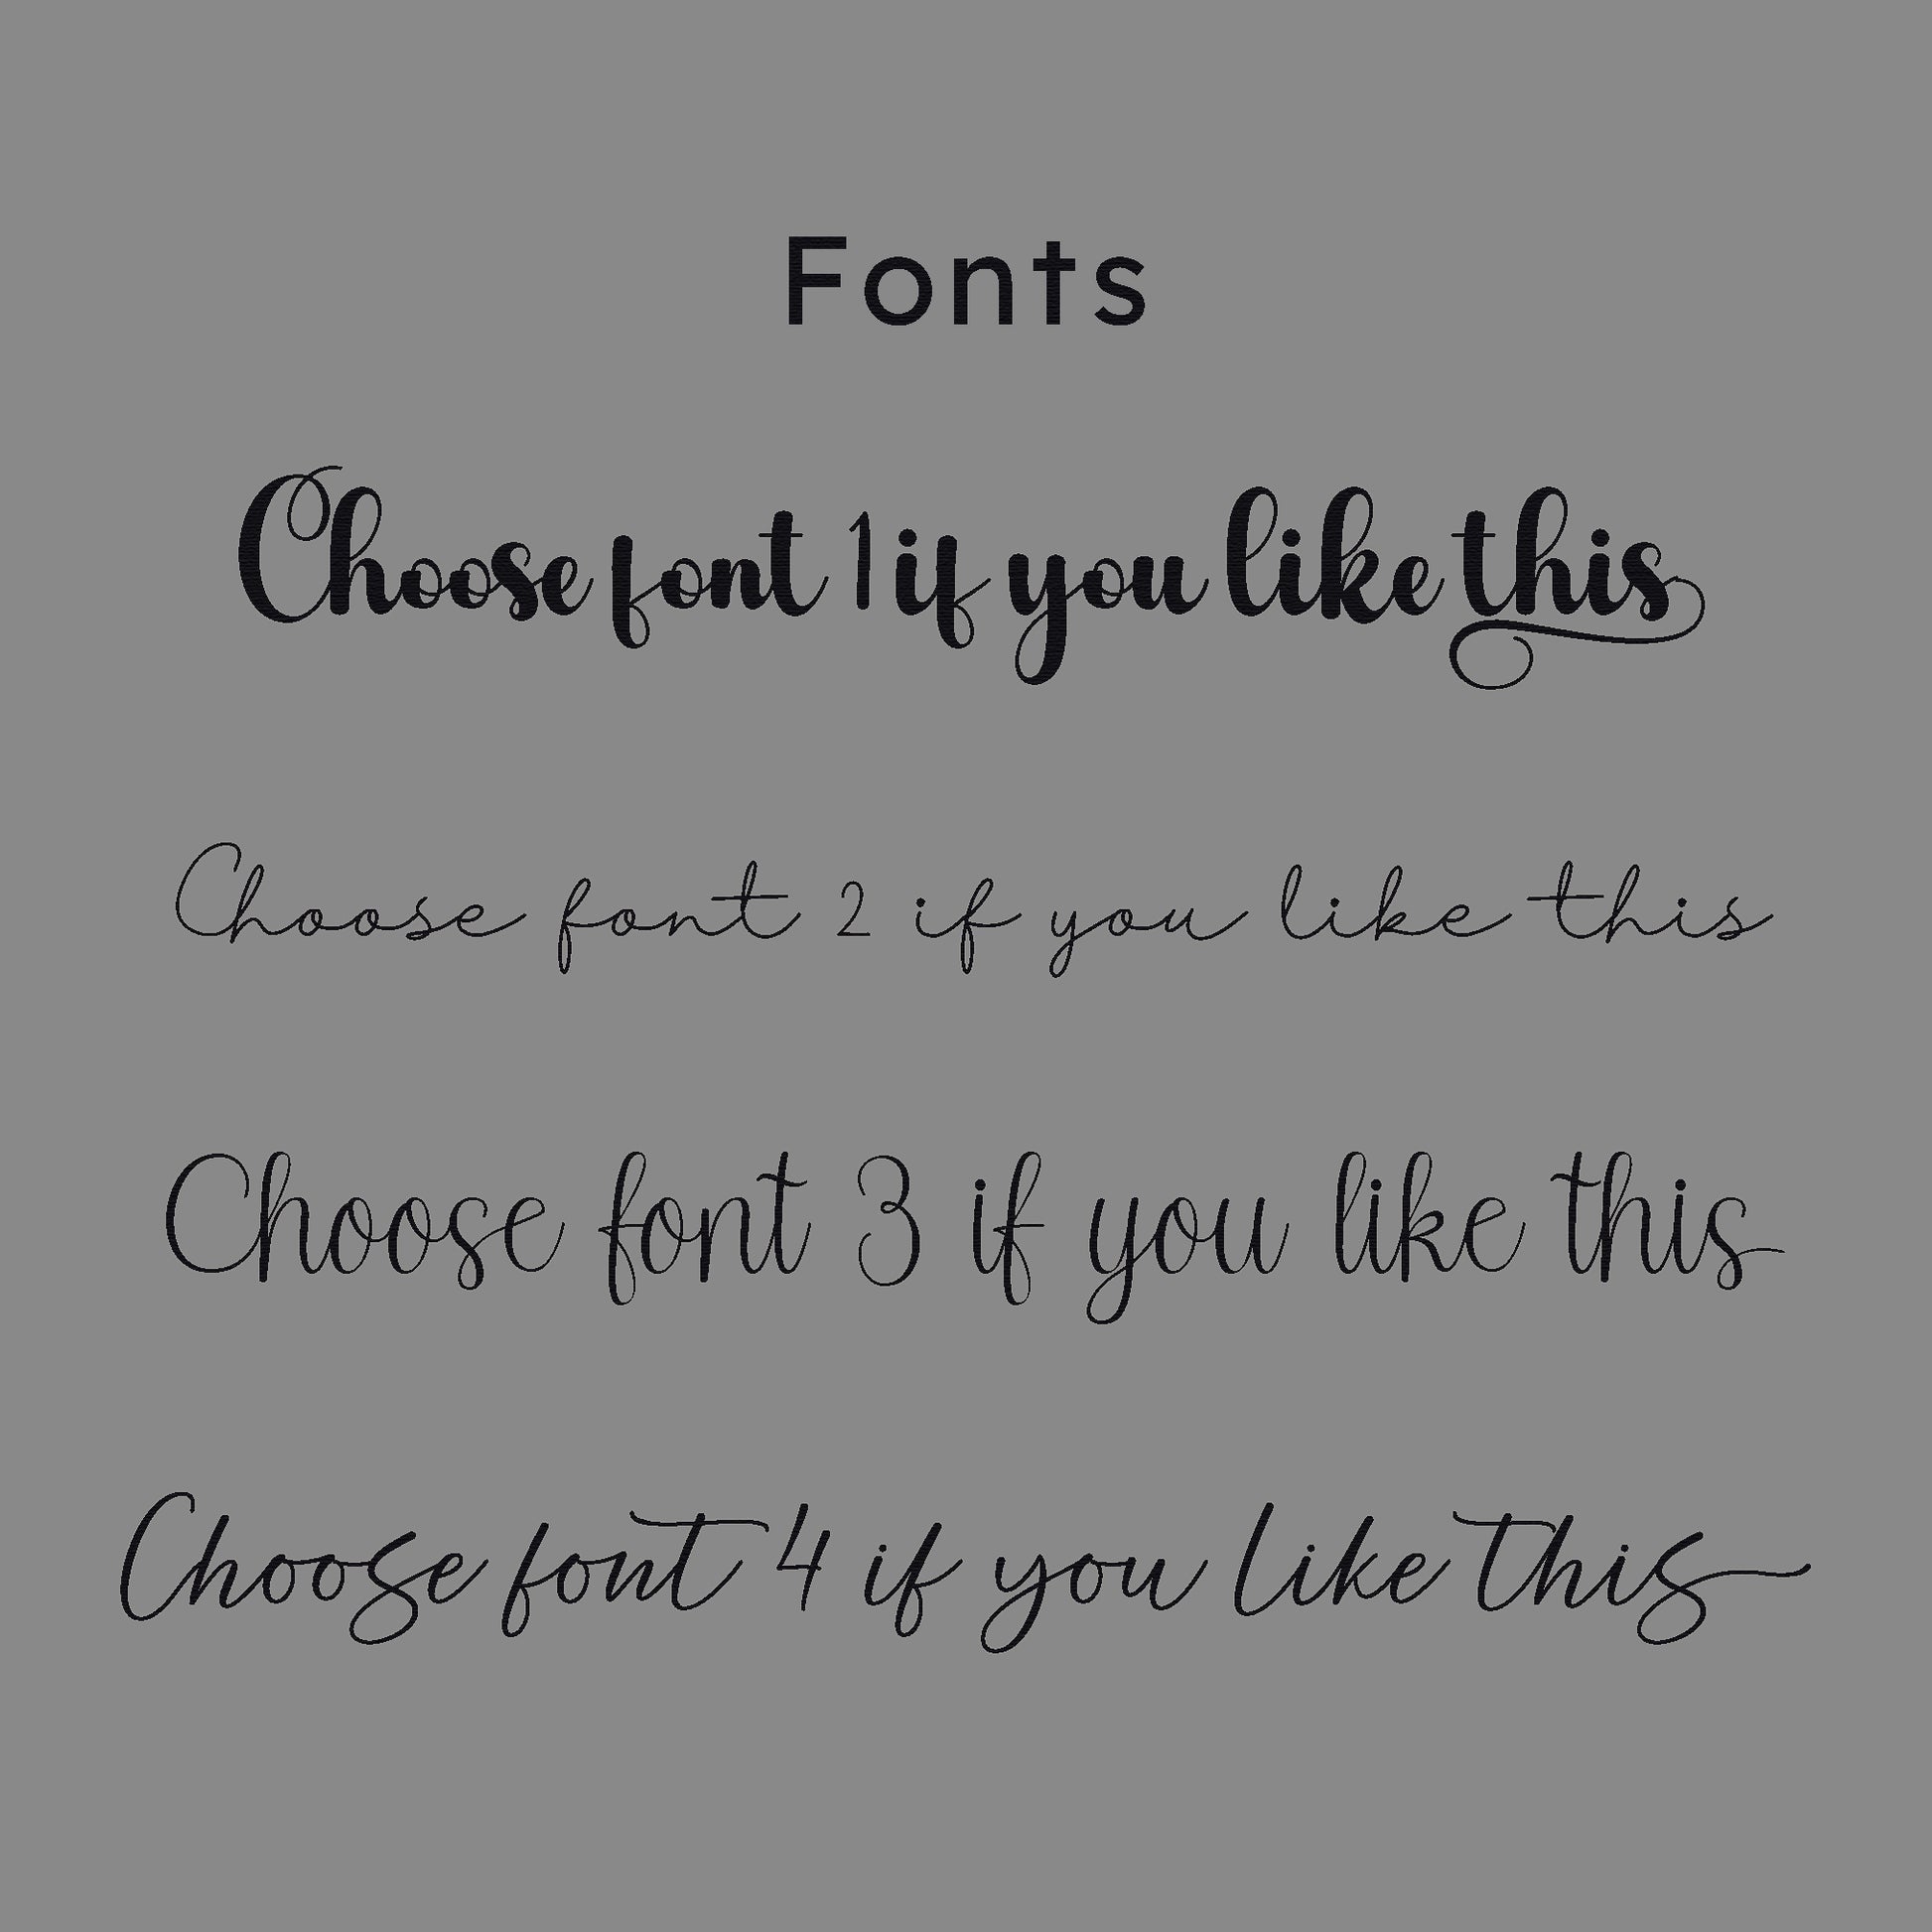 Fonts
Choose font 1 if you like this
Choose font 2 if you like this
Choose font 3 if you like this
Choose font 4 if you like this